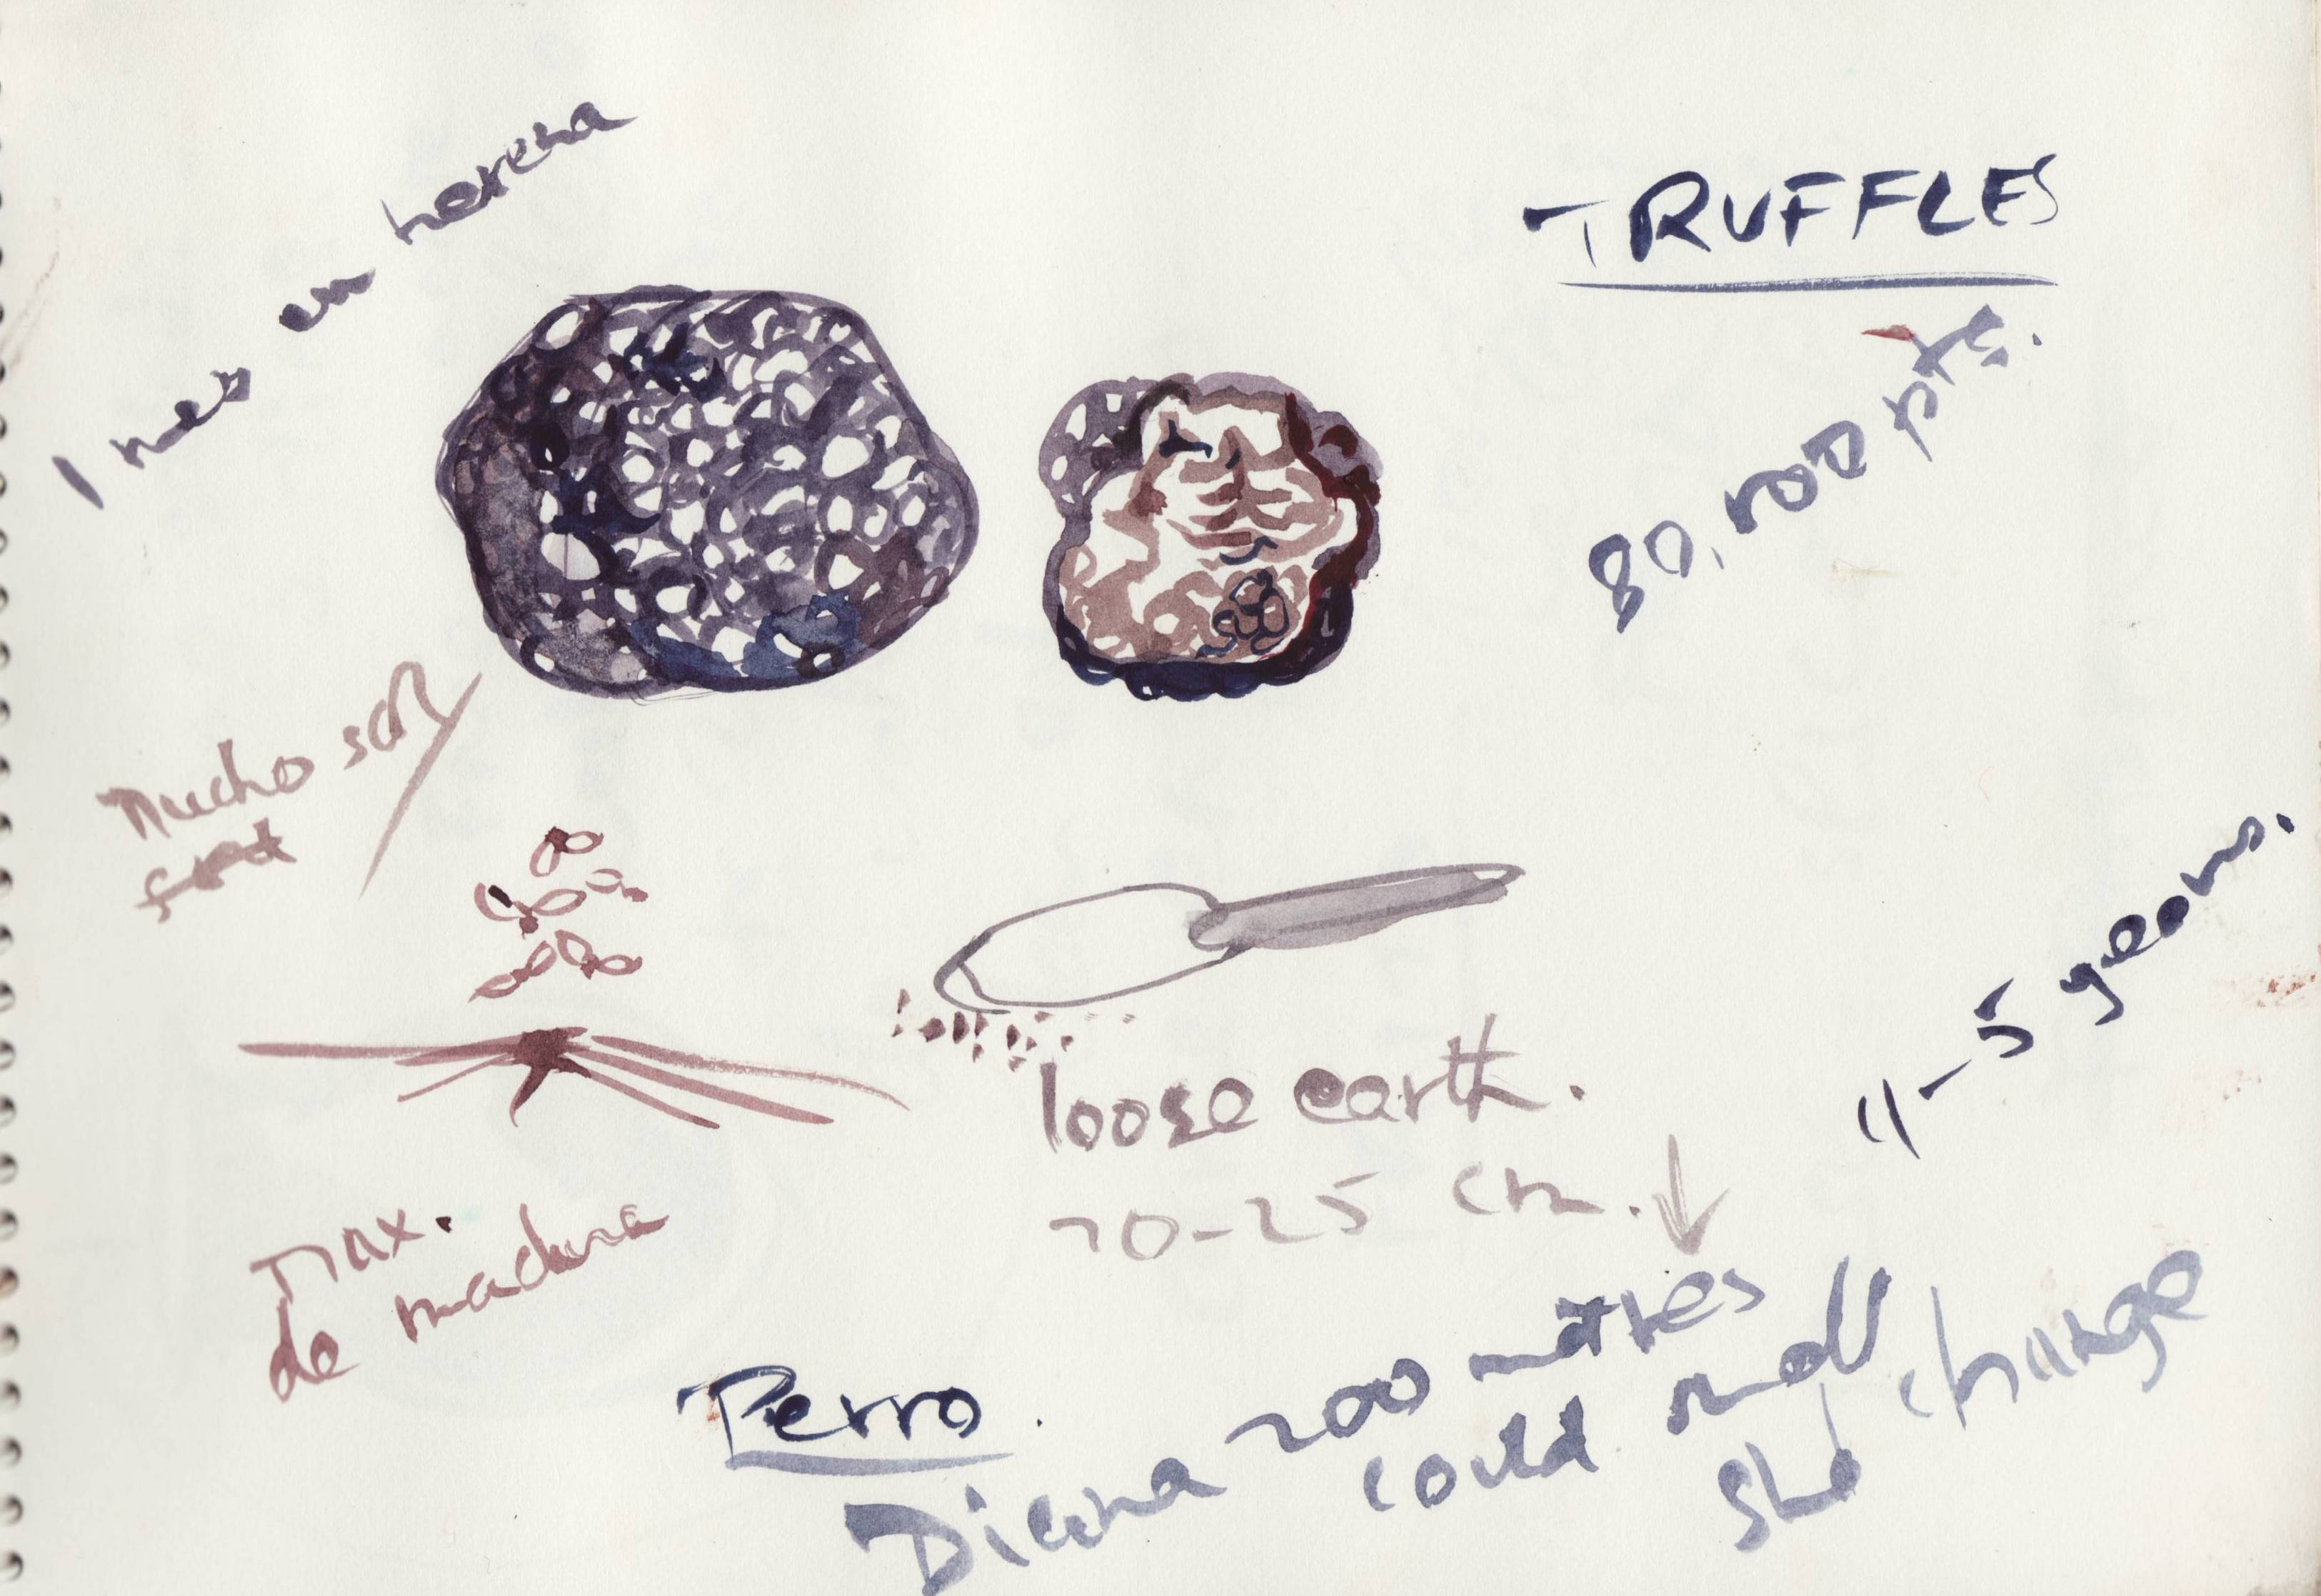 TRUFFLES
80,000 pts.
1 mes en
Mucho sol/
loose earth.
20-25 cm. ↓
5 years.
Max.
de madura
Perro.
200 metres
could smell
She change